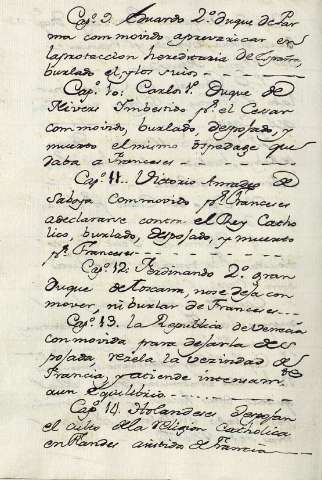 Cap.º 9. Eduardo 2.º Duque de Par
ma commovido a prevaricar en
la proteccion hereditaria de España,
burlado el y los suios
Cap.º 10: Carlos 1.º Duque de
Nivers Imbestido p.r el Cessar
commovido, burlado, deposado, y
muerto el mismo ospedage que
daba a Franceses
Cap.º 11. Victorio Amadeo de
Saboya commovido p.r Franceses
a declararse contra el Rey Catho
lico, burlado, desposado, y muerto
p.r Franceses
Cap.º 12: Ferdinando 2.º gran
Duque de Toscana, no se deja con
mover, ni burlar de Franceses
Cap.º 13. la Republica de Venecia
conmovida para dejarla des
posada, rezela la vezindad de
Francia, y atiende intensam.te
a un equilibrio
Cap.º 14. Holandeses despojan
el culto de la religion Catholica
en Flandes asistido de Francia